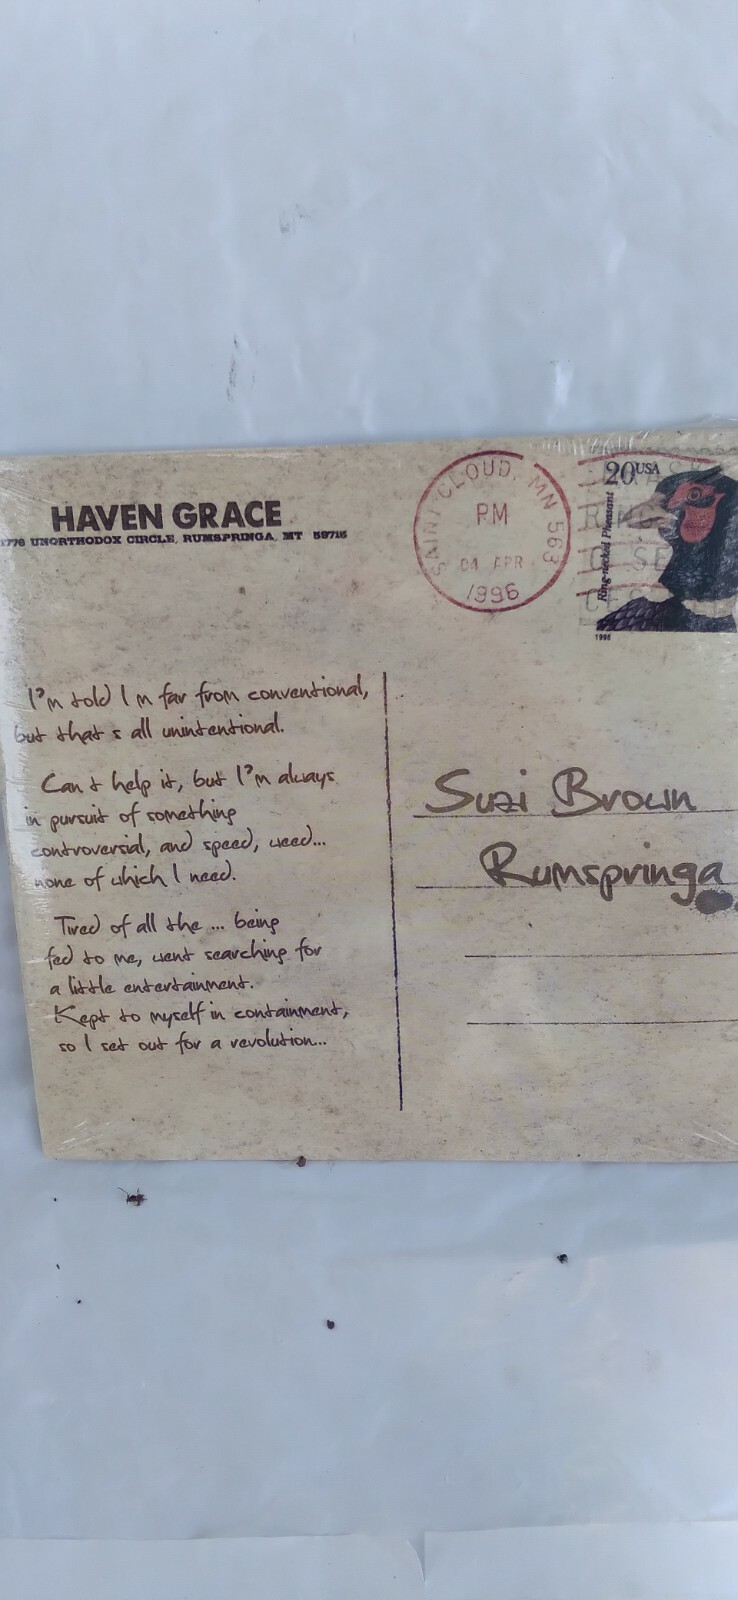 HAVEN GRACE
1776 UNORTHODOX CIRCLE, RUMSPRINGA, MT 59715
SAINT CLOUD, MN 563
PM
04 APR
1996
20USA
Ring-necked Pheasant
1998
I'm told I m far from conventional,
but that s all unintentional.
Can t help it, but I'm always
in pursuit of something
controversial, and speed, weed...
none of which I need.
Tired of all the ... being
fed to me, went searching for
a little entertainment.
Kept to myself in containment,
so I set out for a revolution...
Suzi Brown
Rumspringa